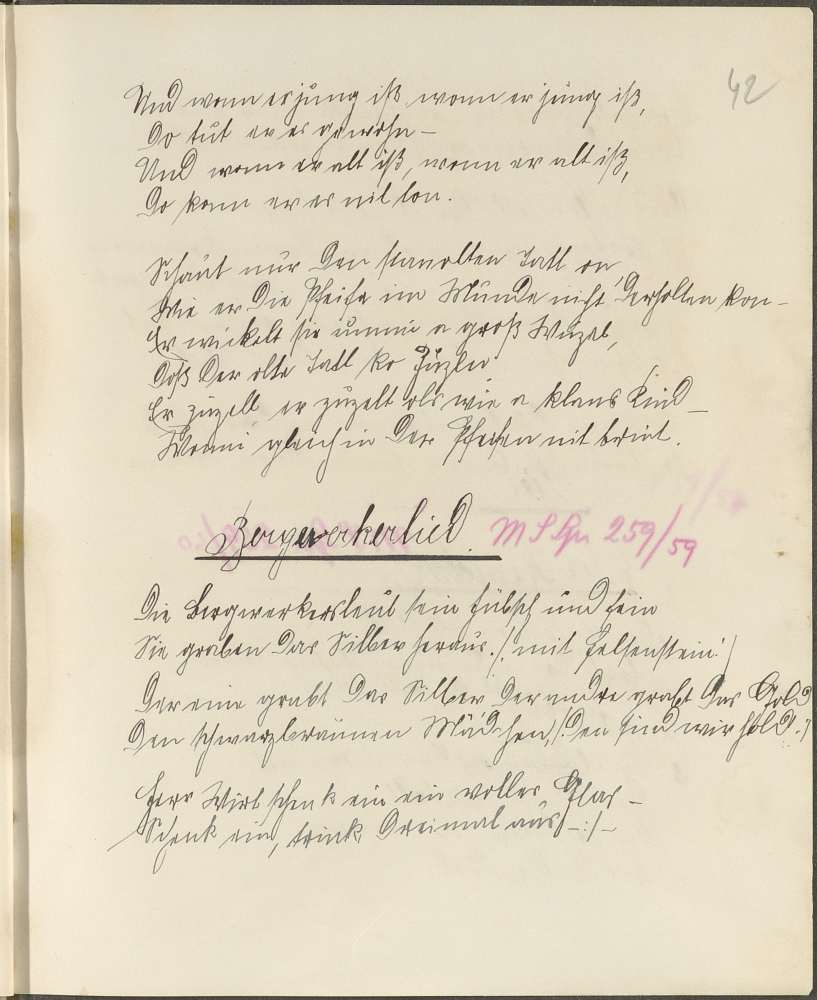 42
Und wenn er jung iß wonn er jung iß,
Do tut er es gewohn –
Und wonn er alt iß, wonn er alt iß,
Do konn er es nit lon.
Schaut nur den stanolten Tatl on
Wie er die Pfeife im Munde nicht derholten kon –
Er wickelt sie ummi a groß Wuzel,
Doß der olte Tatl ko zuzln
Er zuzelt er zuzelt ols wie a klans Kind –
Wonni gleich in der Pfeifen nit brint.
Bergwerkerlied. M S Gr 259/59
Die Bergwerkersleut sein hübsch und fein
Sie graben das Silber heraus. /: mit Felsenstein :/
Der eine grabt das Silber der andre grabt das Gold
Den schwarzbraunen Mädchen, /: den sind wir hold :/
Herr Wirt schenk ein ein volles Glas –
Schenk ein, trink dreimal aus –:/–